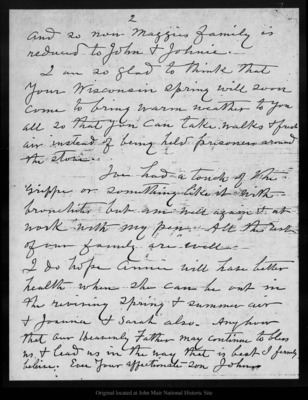 2
And so now Maggies family is
reduced to John & Johnie.
I am so glad to think that
your Wisconsin spring will soon
come to bring warm weather to you
all so that you can take walks & fresh
air instead of being held prisoners around
the stove.
Ive had a touch of the
Grippe or something like it with
bronchitis but am well again & at
work with my pen. All the rest
of our family are well.
I do hope Annie will have better
health when she can be out in
the reviving spring & summer air
& Joanna & Sarah also. Anyhow
that our Heavenly Father may continue to bless
us & lead us in the way that is best I firmly
believe. Ever your affectionate son John
Original located at John Muir National Historic Site